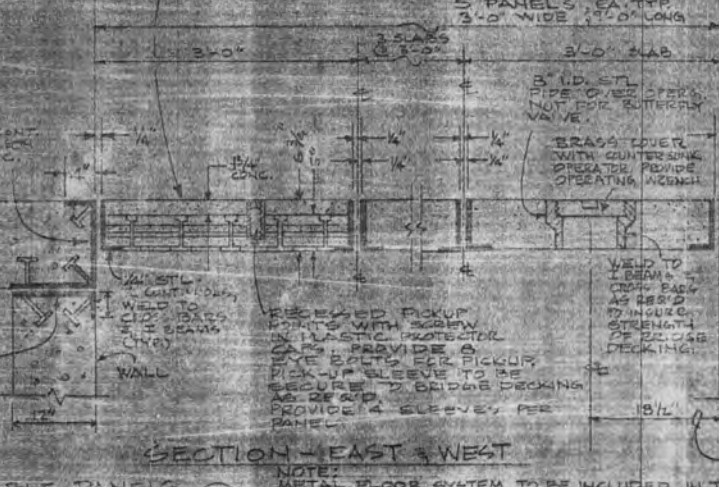 5 PANELS, EA. TYP.
3'-0" WIDE, 9'-0" LONG
3 SLABS
@ 3'-0"
3'-0"
3'-0" SLAB
8" I.D. STL
PIPE OVER OPER'G.
NUT FOR BUTTERFLY
VALVE.
BRASS COVER
WITH COUNTERSINK
OPERATOR PROVIDE
OPERATING WRENCH
1/4"
1/4"
1/4"
1/4"
1/4"
1"
CONC.
5"
1/4" STL.
CONTINUOUS,
WELD TO
CROSS BARS
& I BEAMS
(TYP.)
WALL
12"
RECESSED PICKUP
POINTS WITH SCREW
IN PLASTIC PROTECTOR
CAPS, PROVIDE 8
EYE BOLTS FOR PICKUP,
PICK-UP SLEEVE TO BE
SECURE TO BRIDGE DECKING
AS REQ'D.
PROVIDE 4 SLEEVES PER
PANEL
WELD TO
I BEAMS &
CROSS BARS
AS REQ'D
TO INSURE
STRENGTH
OF BRIDGE
DECKING.
18 1/2"
SECTION - EAST & WEST
NOTE:
PANELS
METAL FLOOR SYSTEM TO BE INCLUDED IN